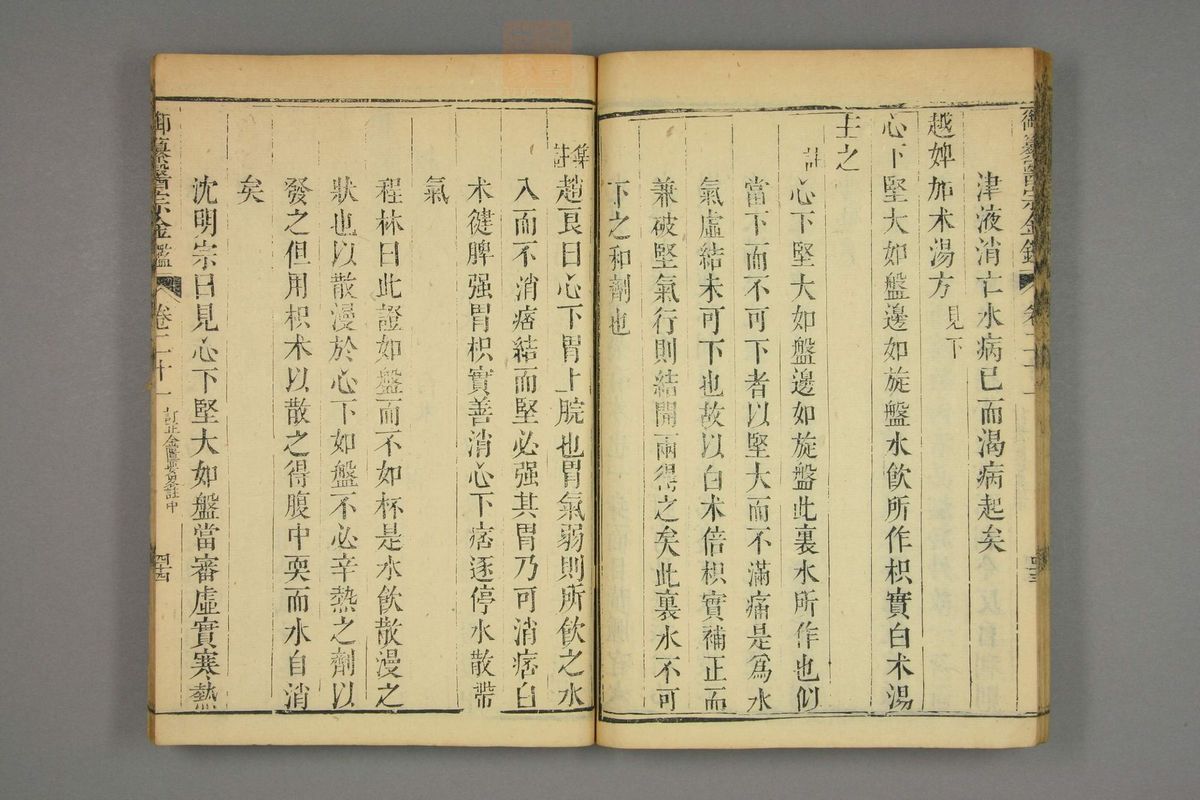 御纂醫宗金鑑
津液消亡水病已而渴病起矣
越婢加朮湯方 見下
心下堅大如盤邊如旋盤水飲所作枳實白朮湯
主之
註 心下堅大如盤邊如旋盤此裏水所作也似
當下而不可下者以堅大而不滿痛是為水
氣虛結未可下也故以白朮倍枳實補正而
兼破堅氣行則結開兩得之矣此裏水不可
下之和劑也
集註 趙良曰心下胃上脘也胃氣弱則所飲之水
入而不消痞結而堅必强其胃乃可消痞白
朮健脾强胃枳實善消心下痞逐停水散滯
氣
程林曰此證如盤而不如杯是水飲散漫之
狀也以散漫於心下如盤不必辛熱之劑以
發之但用枳朮以散之得腹中耎而水自消
矣
沈明宗曰見心下堅大如盤當審虛實寒熱
御纂醫宗金鑑 卷二十一 訂正金匱要略註中